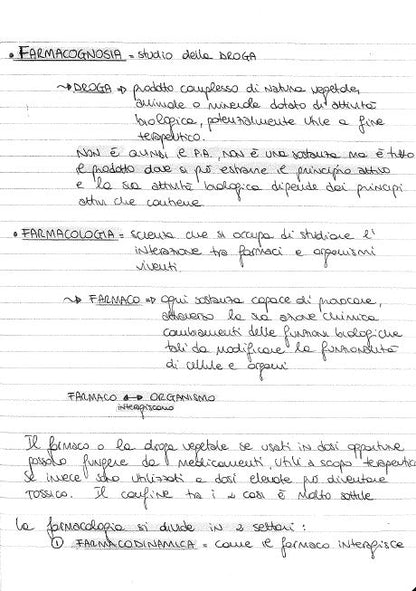 • FARMACOGNOSIA = studio della DROGA
→ DROGA ⇒ prodotto complesso di natura vegetale,
animale o minerale dotato di attività
biologica, potenzialmente utile a fine
terapeutico.
NON È QUINDI IL P.A., NON È UNA sostanza ma è tutto
il prodotto dove si può estrarre il principio attivo
e la sua attività biologica dipende dai principi
attivi che contiene.
• FARMACOLOGIA = scienza che si occupa di studiare l'
interazione tra farmaci e organismi
viventi.
→ FARMACO ⇒ ogni sostanza capace di provocare,
attraverso la sua azione chimica
cambiamenti delle funzioni biologiche
tali da modificare la funzionalità
di cellule e organi
FARMACO ↔ ORGANISMO
interagiscono
Il farmaco o la droga vegetale se usati in dosi opportune
possono fungere da medicamenti, utili a scopo terapeutico
Se invece sono utilizzati a dosi elevate può diventare
TOSSICO. Il confine tra i 2 casi è molto sottile
La farmacologia si divide in 2 settori:
① FARMACODINAMICA = come il farmaco interagisce